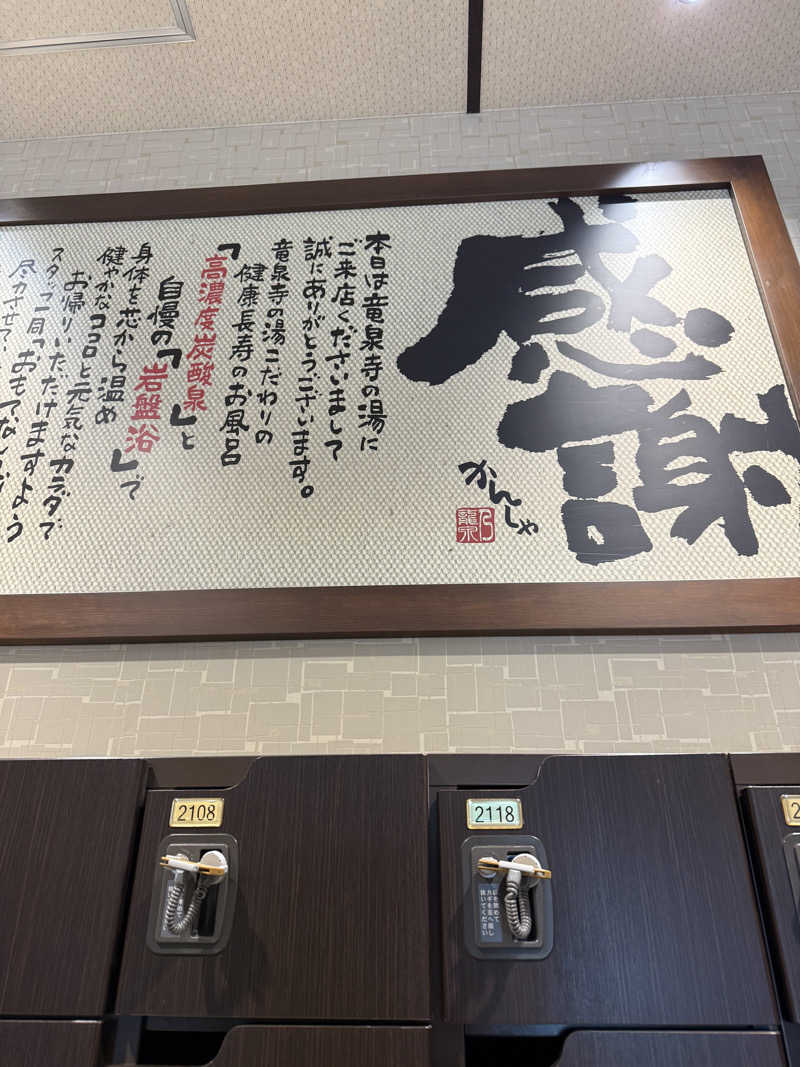 感謝
かんしゃ
龍泉乃
本日は竜泉寺の湯に
ご来店くださいまして
誠にありがとうございます。
竜泉寺の湯こだわりの
健康長寿のお風呂
「高濃度炭酸泉」と
自慢の「岩盤浴」で
身体を芯から温め
健やかなココロと元気なカラダで
お帰りいただけますよう
スタッフ一同「おもてなし
尽力させて
2108
2118
カギを左へ回し
抜いてください
2